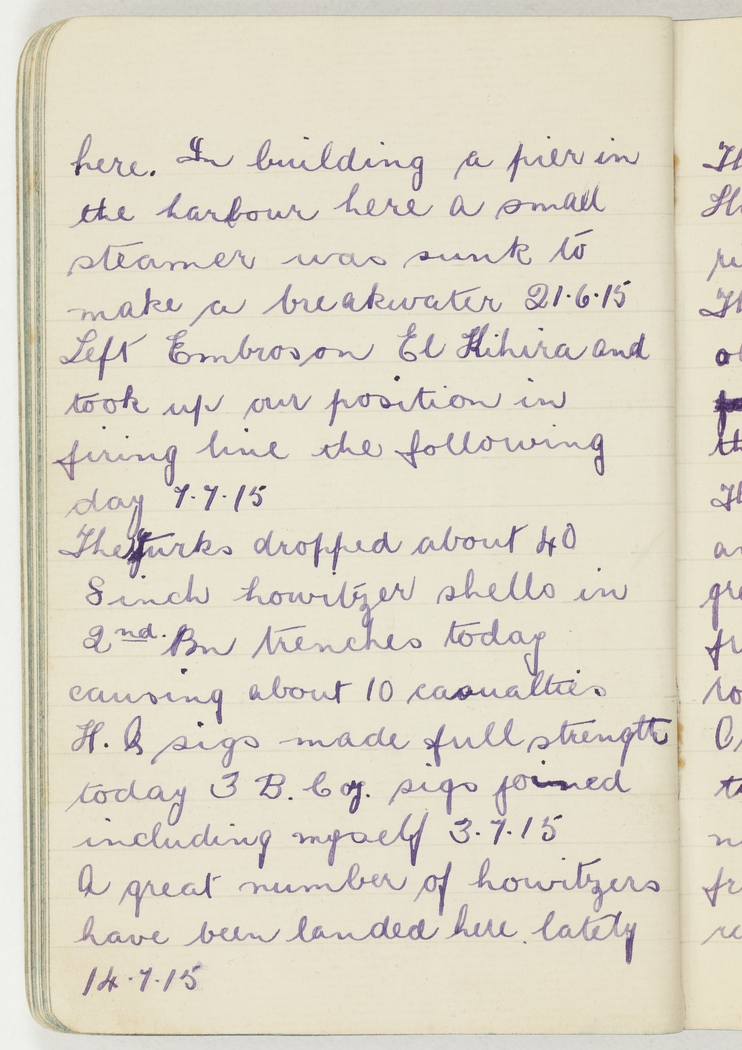 here. In building a pier in
the harbour here a small
steamer was sunk to
make a breakwater 21.6.15
Left Embros on El Kihira and
took up our position in
firing line the following
day 7.7.15
The Turks dropped about 40
8 inch howitzer shells in
2nd. Bn trenches today
causing about 10 casualties
H. Q sigs made full strength
today 3 B. Coy. sigs joined
including myself 3.7.15
A great number of howitzers
have been landed here lately
14.7.15